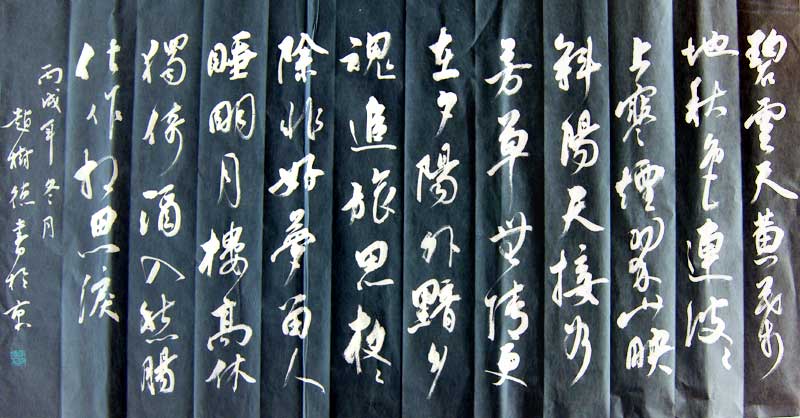 碧雲天黃葉
地秋色連波々
上寒煙翠山映
斜陽天接水
芳草無情更
在夕陽外黯乡
魂追旅思
除非好夢留人
睡明月樓高休
獨倚酒入愁腸
化作相思淚
丙戌年冬月
趙樹德書於京